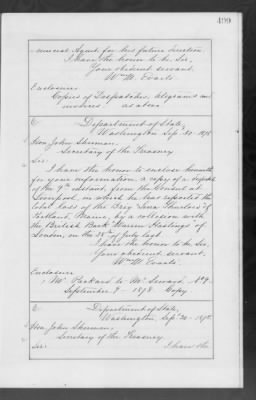 499
mercial Agent for his future direction.
I have the honor to be, Sir,
Your obedient servant.
Wm M. Evarts.
Enclosures
Copies of Despatches, telegrams and
as above
Department of State,
Washington Sep. 20 1878
Hon. John Sherman,
Secretary of the Treasury
Sir:
I have the honor to enclose herewith
for your information, a copy of a dispatch
of the 7th instant, from the Consul at
Liverpool, in which he has reported the
total loss of the Brig
Portland, Maine, by a collision with
the British Bark Warren Hastings of
London, on the July last.
I have the honor to be, Sir,
Your obedient servant,
Wm M. Evarts
Enclosure
Mr. Packard to Mr. Seward, No 9.
September 7 1878. Copy
Department of State,
Washington, Sep. 20 1878.
Hon. John Sherman,
Secretary of the Treasury.
Sir: I have the